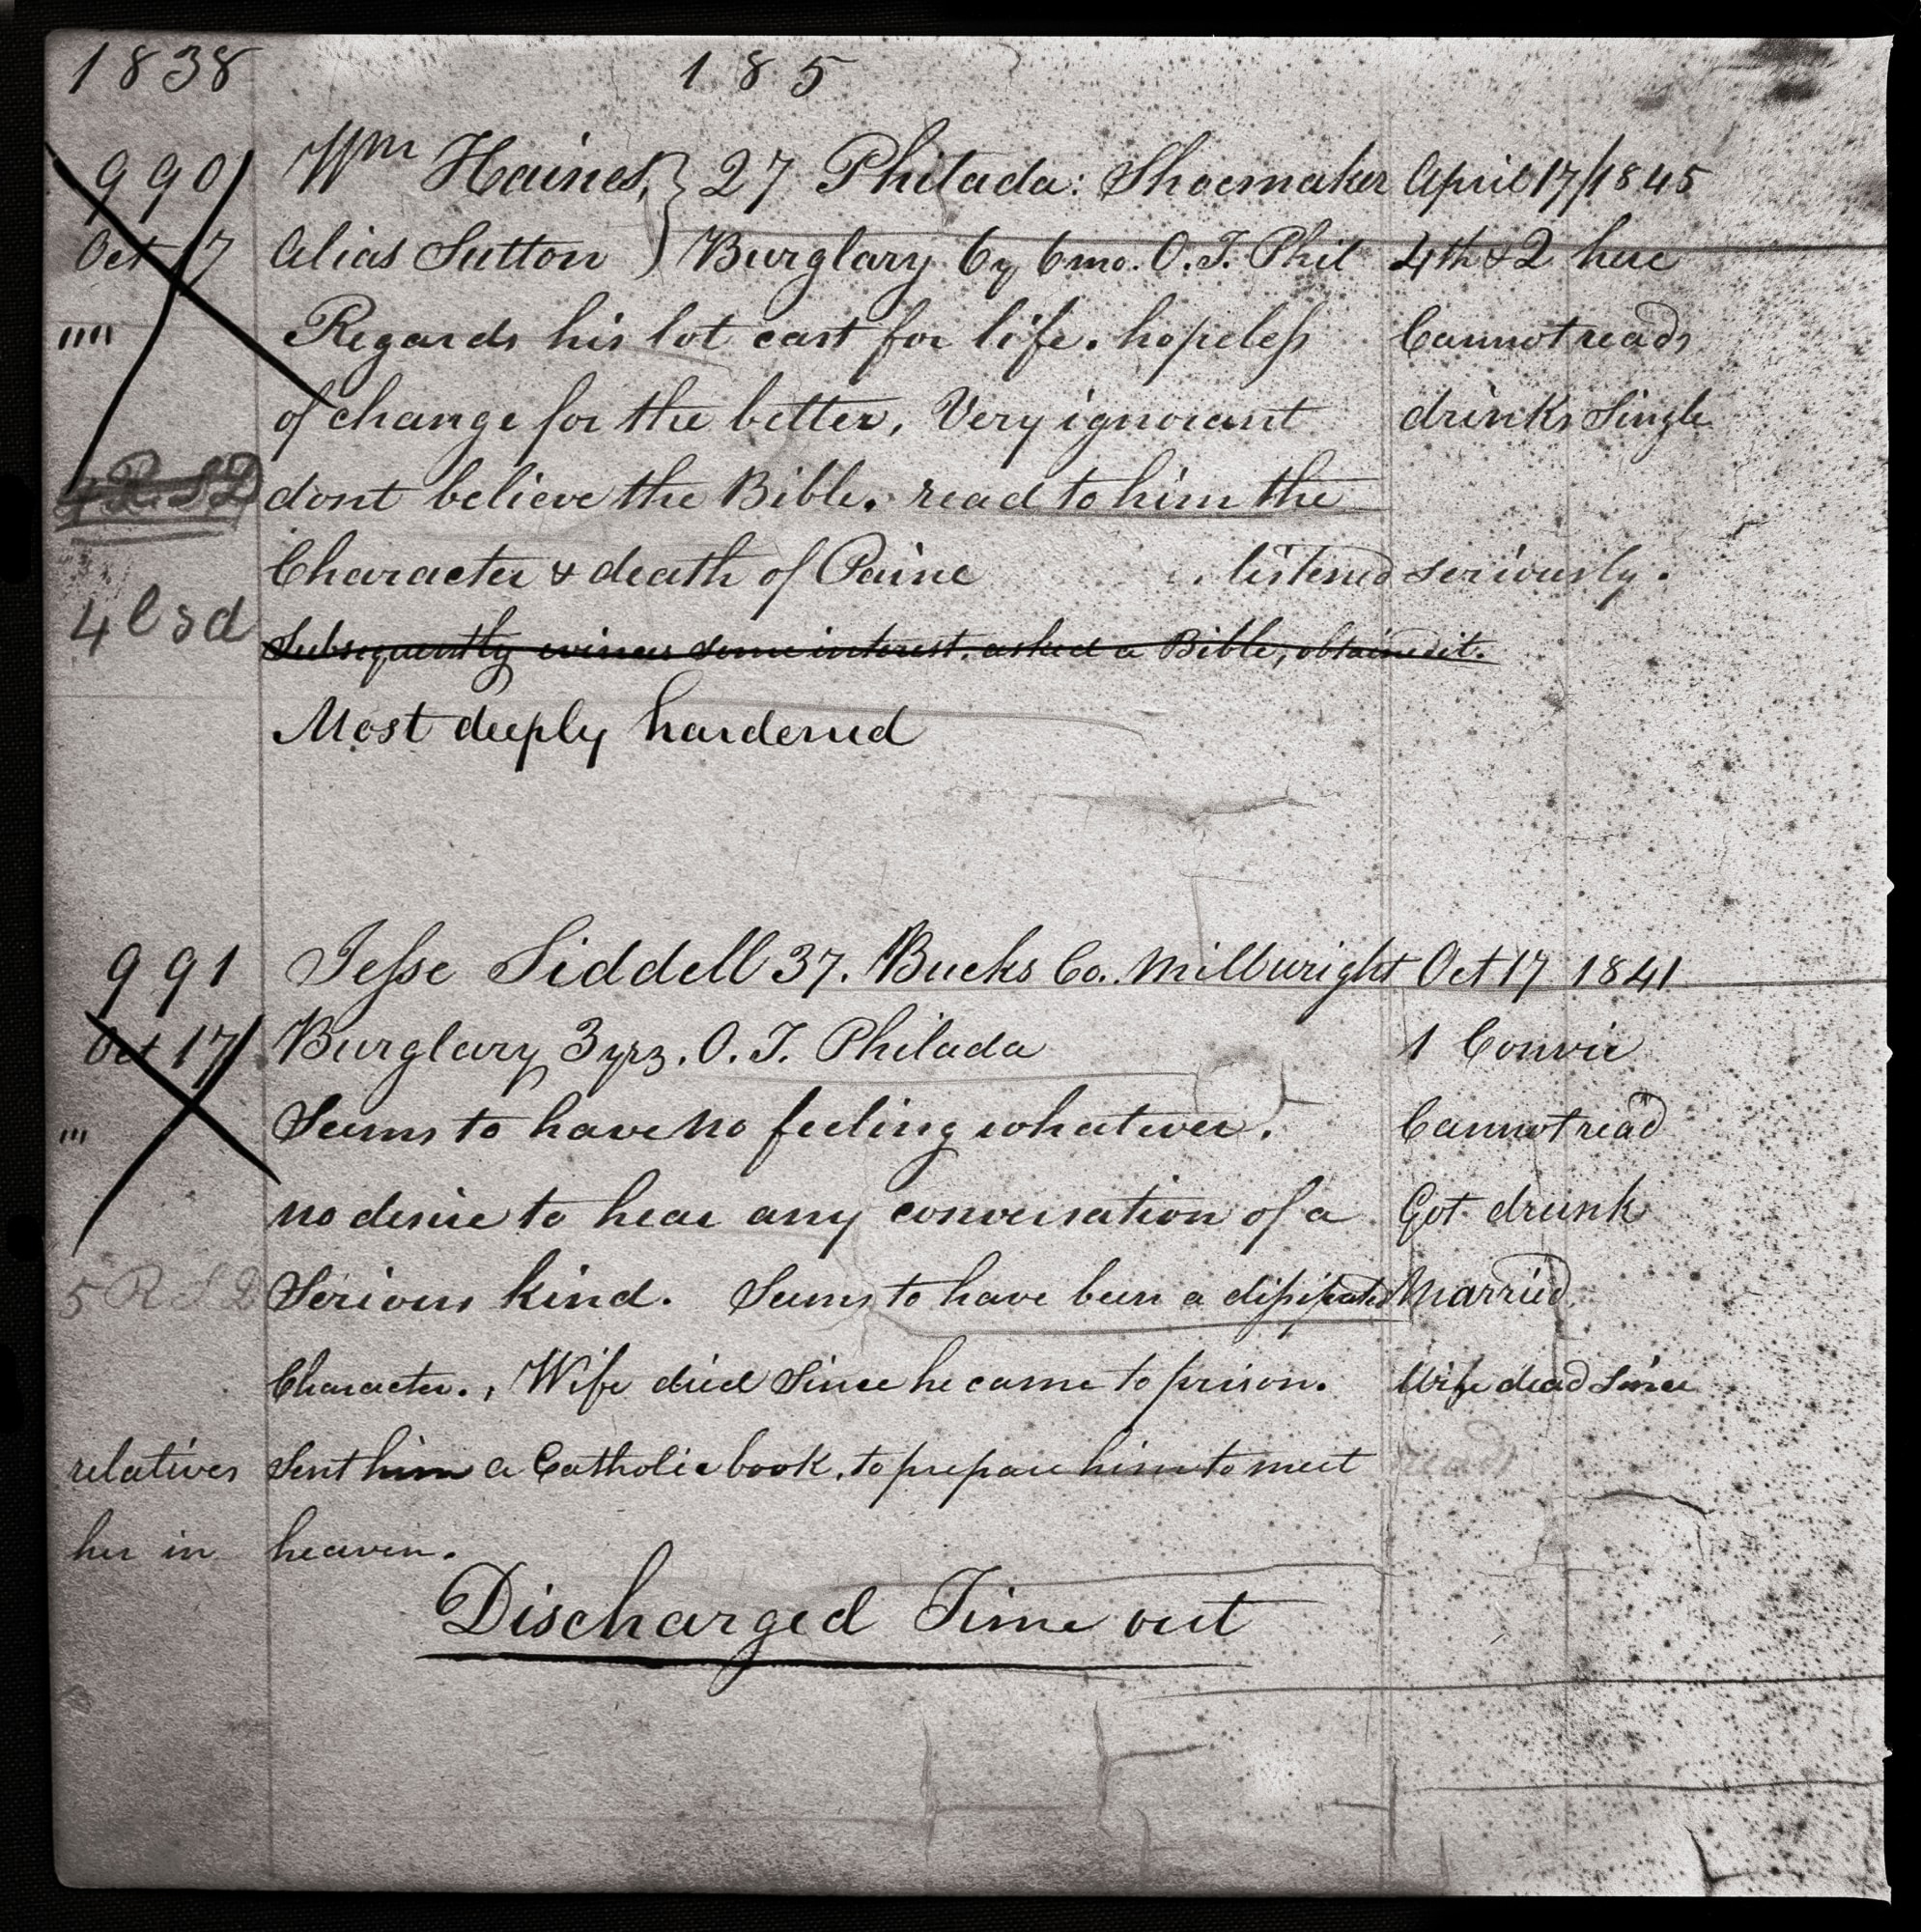 1838 185
990 Wm Haines, } 27 Philada: Shoemaker April 17/1845
Oct 17 Alias Sutton ) Burglary 6y 6mo. O.T. Phil 4th & 2 here
"" Regards his lot cast for life. hopeless Cannot read
of change for the better, Very ignorant drinks Single
dont believe the Bible. read to him the
Character & death of Paine listened seriously.
4 l s d Subsequently evinces some interest, asked a Bible, obtained it.
Most deeply hardened
991 Jesse Siddell 37. Bucks Co.. Millwright Oct 17 1841
Oct 17 Burglary 3 yrs. O.T. Philada 1 Convic
"' Seems to have no feeling whatever. Cannot read
no desire to hear any conversation of a Got drunk
5 R S D Serious kind. Seems to have been a dissipated Married
Character., Wife died Since he came to prison. Wife dead Since
relatives Sent him a Catholic book, to prepare him to meet read
her in heaven.
Discharged Time out